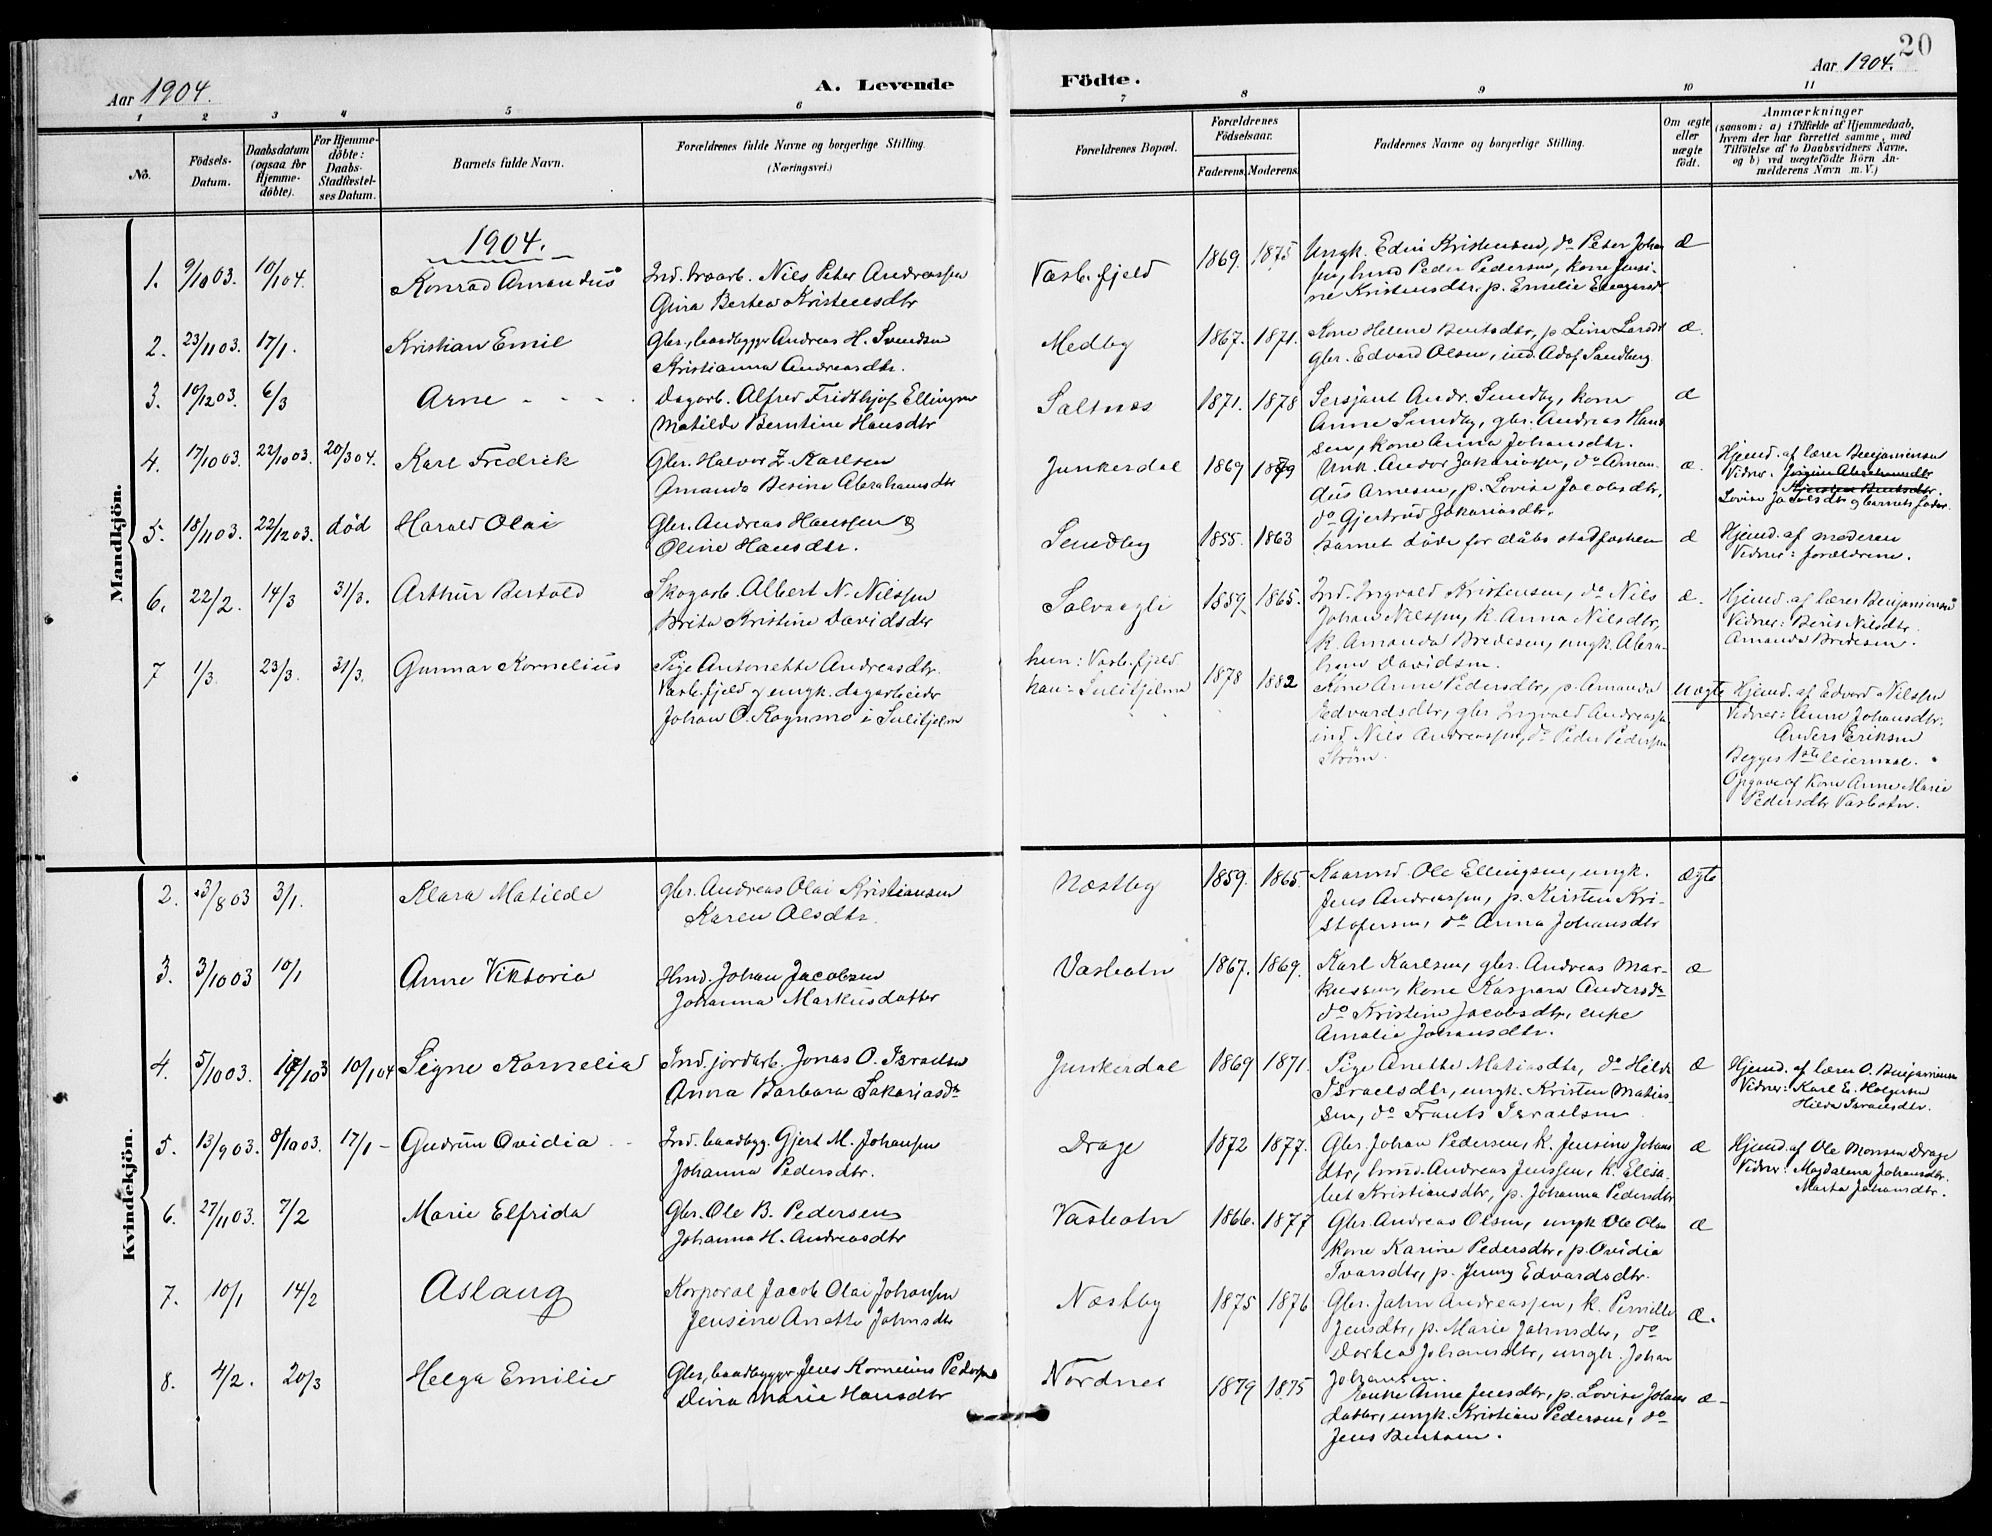 20
Aar 1904.
A. Levende
Födte.
Aar 1904.
1 2 3 4 5 6 7 8 9 10 11
No.
Födsels-
Datum.
Daabsdatum
(ogsaa for
Hjemme-
döbte).
For Hjemme-
döbte:
Daabs-
Stadfæstel-
ses Datum.
Barnets fulde Navn.
Forældrenes fulde Navne og borgerlige Stilling.
(Næringsvei.)
Forældrenes Bopæl.
Forældrenes
Födselsaar.
Faderens. Moderens.
Faddernes Navne og borgerlige Stilling.
Om ægte
eller
uægte
født.
Anmærkninger
(saasom: a) i Tilfælde af Hjemmedaab,
hvem der har forrettet samme, med
Tilföielse af to Daabsvidners Navne,
og b) ved uægtefödte Börn An-
melderens Navn m. V.)
Mandkjön.
1904.
1. 9/10 03. 10/1 04. Konrad Amandus
Ind. Nils Peter Andreassen
Gina Bertea Kristensdtr
Vasb.fjeld 1869. 1875
Ungk. Edin Kristensen, do Peter Johan
sen, hmd Peder Pedersen, kone Jensi-
ne Kristensdtr, p. Emelie
æ
2. 23/11 03. 17/1. Kristian Emil
Gbr., baadbygger Andreas H. Svendsen
Kristianna Andreasdtr.
Medby 1867. 1871.
Kone Helene Berntsdtr, p Lina Larsdtr
gbr. Edvard Olsen, ind. Adof Sandberg
æ.
3. 10/12 03. 6/3 Arne
Dagarb. Alfred Fridthjof Ellingsen
Matilde Berntine Hansdtr
Saltnes 1871. 1878
Sersjant Andr. Sundby, kone
Anne Sundby, gbr. Andreas Han-
sen, kone Anna Johansdtr.
æ
4. 17/10 03. 22/10 03. 20/3 04. Karl Fredrik
Gbr. Halvor Z. Karlsen
Amanda Besine Abrahamsdtr
Junkerdal 1869 1879
Unk. Andor Zakariassen, do Aman-
dus Arnesen, p. Lovise Jacobsdtr,
do Gjertrud Zakariasdtr.
æ.
Hjemd. af lærer Benjaminsen
Vidner.
Lovise Jacobsdtr og barnets fader.
5. 18/11 03. 22/12 03. død Harald Olai
Gbr. Andreas Hanssen &
Oline Hansdtr.
Sundby 1855. 1863
Barnet døde før dåbs stadfæsten
æ
Hjemd. af moderen
Vidner: forældrene.
6. 22/2. 14/3 31/3. Arthur Bertold
Skogarb. Albert N. Nilssen
Brita Kristine Davidsdtr
Solvaagli 1859. 1865.
Ind. Ingvald Kristensen, do Nils
Johan Nilssen, k. Anna Nilsdtr,
k. Amanda Bredesen, ungk. Abra-
ham Davidsen.
æ.
Hjemd. af lærer Benjaminsen
Vidner: Beris Nilsdtr.
Amanda Bredesen.
7 1/3. 23/3. 31/3. Gunnar Kornelius
Pige Antonette Andreasdtr.
Vasb.fjeld og ungk. dagarbeider
Johan O. Rognmo i Sulitjelma
hun: Vasb.fjeld
han: Sulitjelma
1878 1882
Kone Anne Pedersdtr, p. Amanda
Edvardsdtr, gbr Ingvald Andreassen
ind Nils Andreassen, do Peder Pedersen
Strøm.
Uægte
Hjemd. af Edvard Nilssen
Vidner: Anne Johansdtr.
Anders Eriksen
Begges 1ste leiermaal.
Opgave af Kone Anne Marie
Pedersdtr Vasbotn.
Kvindekjön.
2. 3/8 03 3/1. Klara Matilde
gbr. Andreas Olai Kristiansen
Karen Olsdtr.
Næstby 1859. 1865.
Kaarmd. Ole Ellingsen, ungk.
Jens Andreassen, p. Kirsten Kri-
stofersen, do Anna Johansdtr
ægte
3. 3/10 03 10/1 Anne Viktoria
Hmd. Johan Jacobsen
Johanna Markusdatter
Vasbotn 1867. 1869.
Karl Karlsen, gbr. Andreas Mar-
kussen, kone Kaspara Andersdtr
do Kristine Jacobsdtr, enke
Amalia Johansdtr.
æ
4. 5/10 03. 17/10 3 10/1 04 Signe Kornelia
Ind. jordarb. Jonas O. Israelsen
Anna Barbara Sakariasdtr
Junkerdal 1869 1871.
Pige Anette Matiasdtr, do Hilda
Israelsdtr, ungk. Kristen Matias-
sen, do Frants Israelsen
æ
Hjemd. af lærer O. Benjaminsen
Vidner: Karl E. Holgersen
Hilda Israelsdtr.
5. 13/9 03. 8/10 03. 17/1 - Gudrun Ovidia
Ind. baadbyg. Gjert M. Johansen
Johanna Pedersdtr.
Drage 1872 1877.
Gbr. Johan Pedersen, k. Jensine Johans
dtr, hmd. Andreas Jenssen, k. Elisa-
bet Kristiansdtr, p. Johanna Pedersdtr
æ
Hjemd. af Ole Monsen Drage
Vidner: Magdalena Johansdtr.
Marta Johansdtr.
6. 27/11 03. 7/2 Marie Elfrida
Gbr. Ole B. Pedersen
Johanna H. Andreasdtr
Vasbotn 1866. 1877
Gbr. Andreas Olsen, ungk Ole Olsen
kone Karine Pedersdtr, p. Ovidia
Ivarsdtr, p. Jenny Edvardsdtr.
æ
7. 10/1 14/2 Aslaug
Korporal Jacob Olai Johansen
Jensine Anette Jahnsdtr
Næstby 1875 1876
Gbr. Jahn Andreassen, k. Pernille
Jensdtr, p. Marie Jahnsdtr, do
Dortea Johansdtr, ungk. Johan
Johansen.
æ.
8. 4/2. 20/3 Helga Emilie
Gbr, baadbygger Jens Kornelius Pedersen
Dina Marie Hansdtr
Nordnes 1879 1875
Enke Anne Jensdtr, p. Lovise Johans
datter, ungk. Kristian Pedersen, do
Jens Bentsen.
æ-